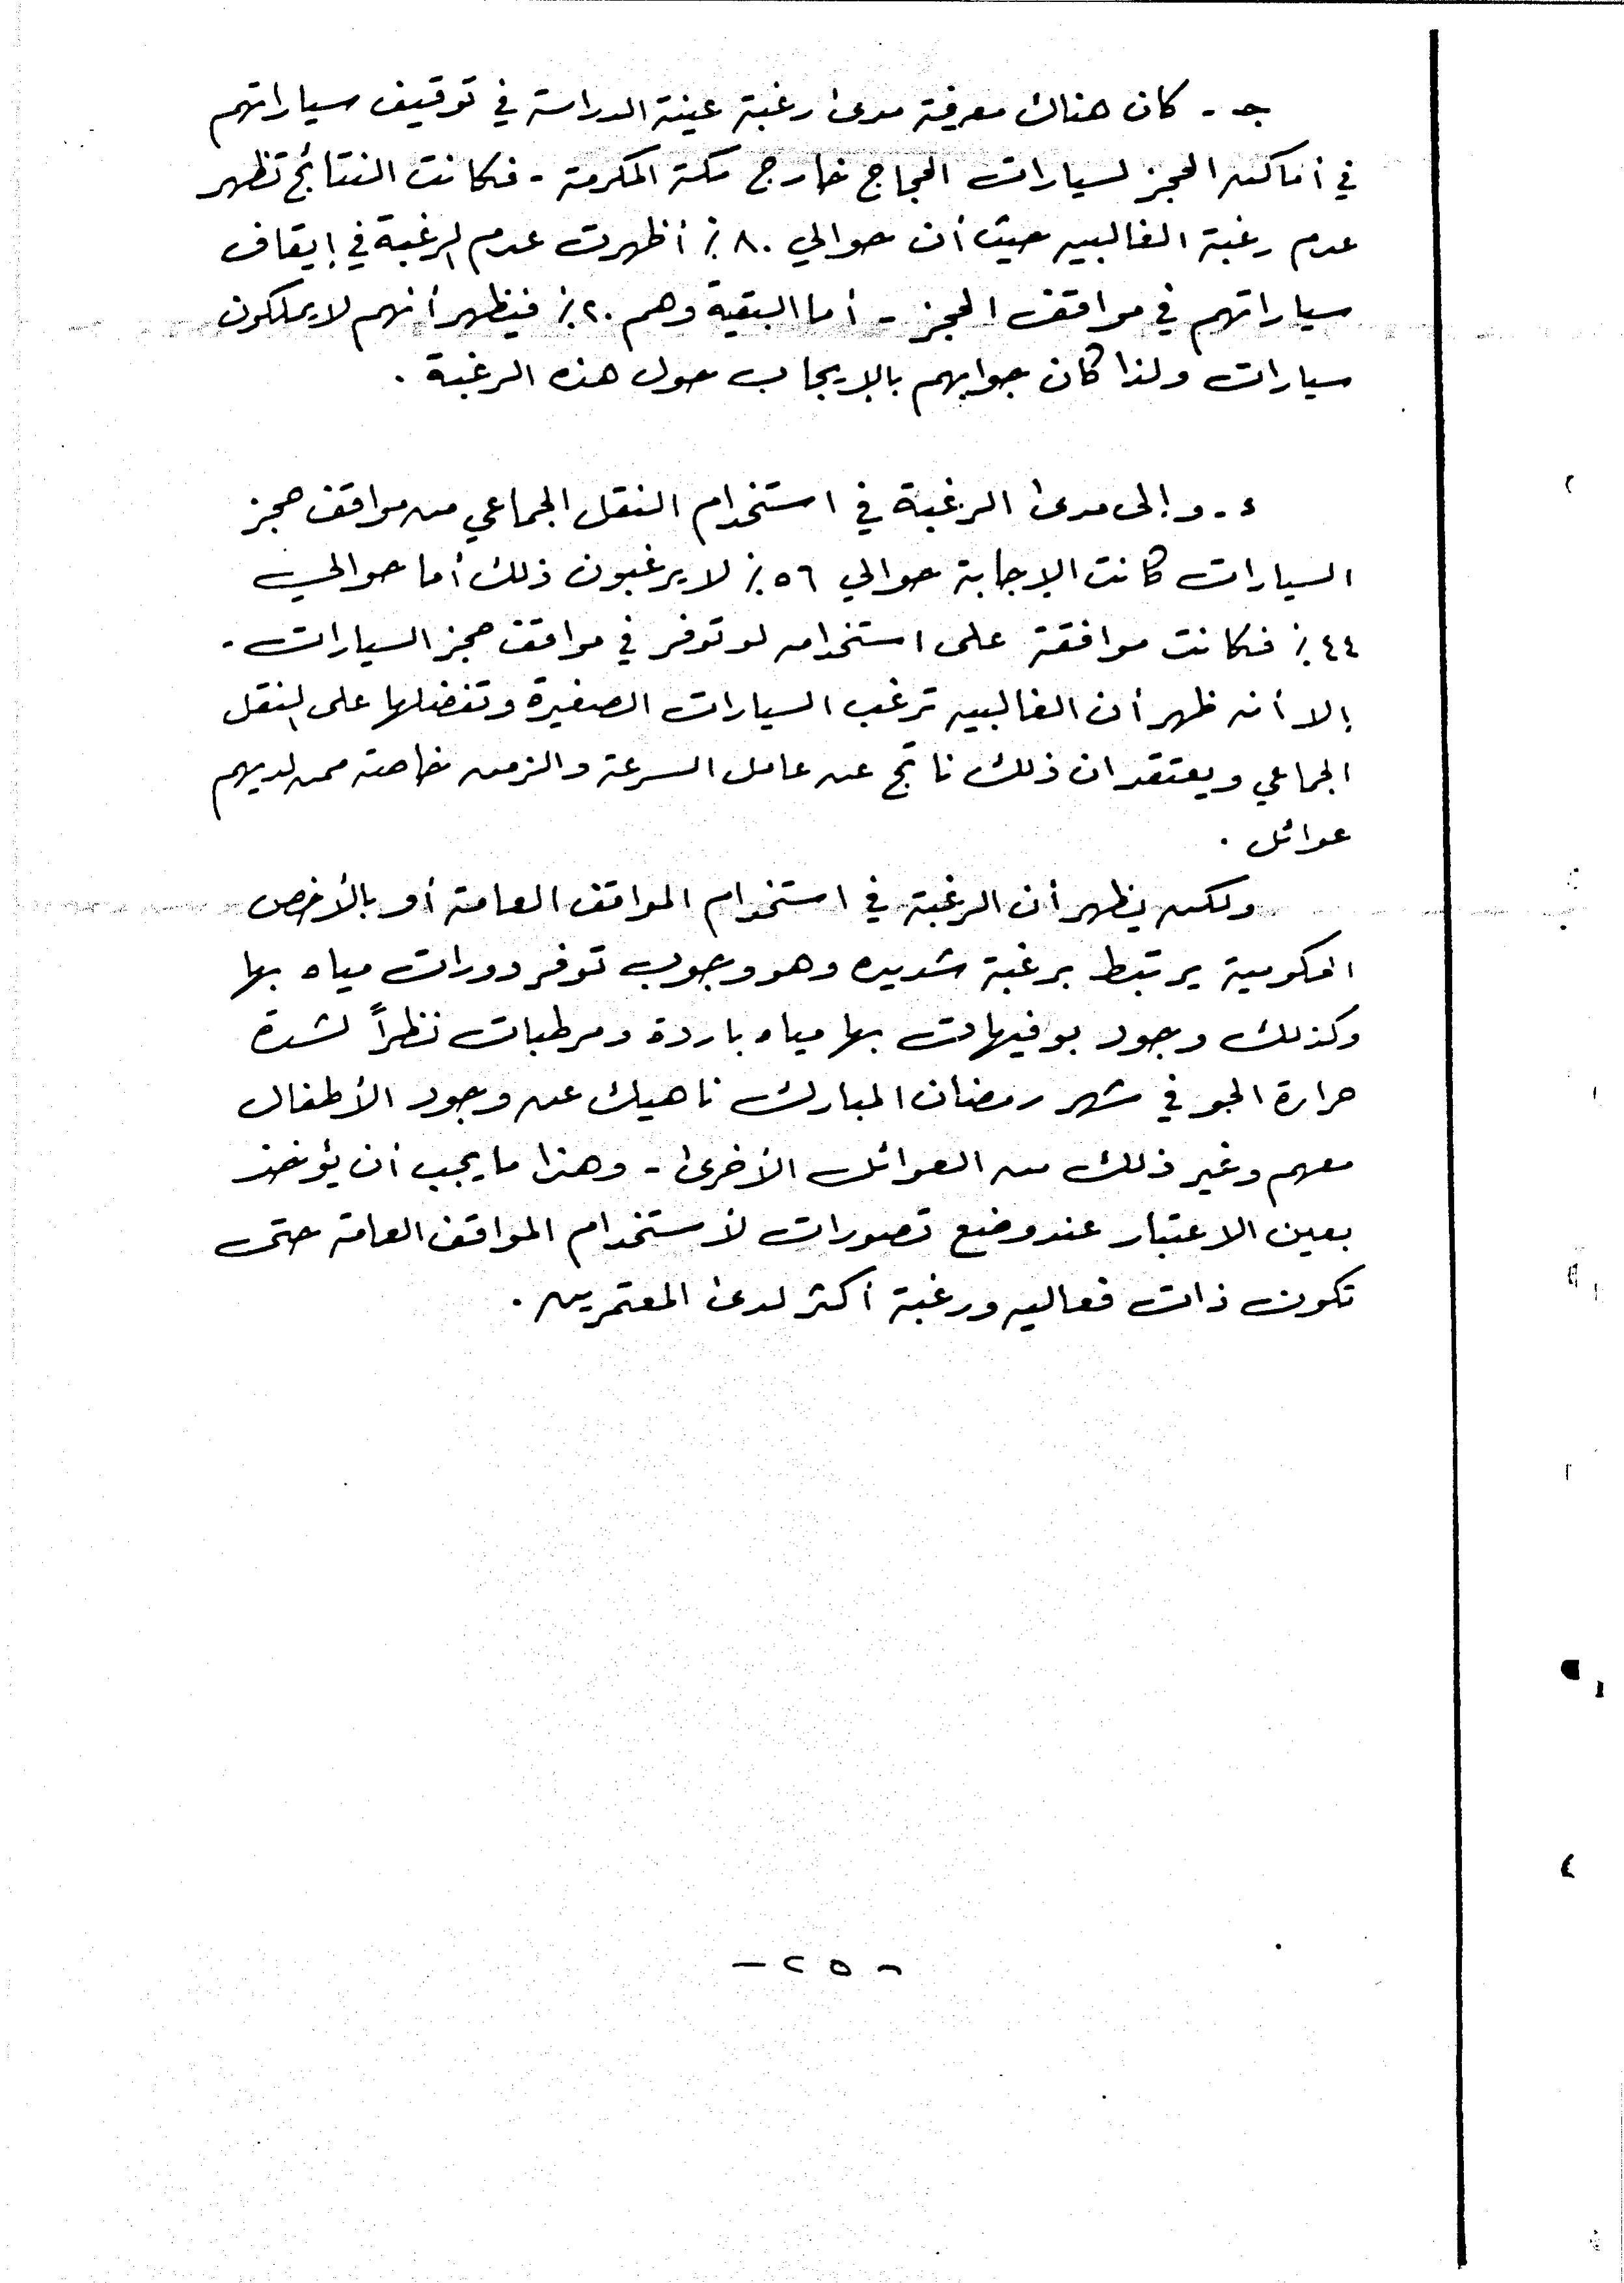 جـ - كان هناك معرفة مدى رغبة عينة الدراسة في توقيف سياراتهم
في أماكن الحجز لسيارات الحجاج خارج مكة المكرمة - فكانت النتائج تظهر
عدم رغبة الغالبيه حيث أن حوالي ٨٠٪ أظهرت عدم الرغبة في إيقاف
سياراتهم في مواقف الحجز - أما البقية وهم ٢٠٪ فيظهر أنهم لا يملكون
سيارات ولذا كان جوابهم بالإيجاب حول هذه الرغبة .
د - وإلى مدى الرغبة في استخدام النقل الجماعي من مواقف حجز
السيارات كانت الإجابة حوالي ٥٦٪ لا يرغبون ذلك أما حوالي
٤٤٪ فكانت موافقة على استخدامه لو توفر في مواقف حجز السيارات -
إلا أنه ظهر أن الغالبيه ترغب السيارات الصغيرة وتفضلها على النقل
الجماعي ويعتقد ان ذلك ناتج عن عامل السرعة والزمن خاصة ممن لديهم
عوائل .
ولكن يظهر أن الرغبة في استخدام المواقف العامة أو بالأخص
الحكومية يرتبط برغبة شديده وهو وجوب توفر دورات مياه بها
وكذلك وجود بوفيهات بها مياه باردة ومرطبات نظراً لشدة
حرارة الجو في شهر رمضان المبارك ناهيك عن وجود الأطفال
معهم وغير ذلك من العوائل الأخرى - وهذا ما يجب أن يؤخذ
بعين الاعتبار عند وضع تصورات لأستخدام المواقف العامة حتى
تكون ذات فعاليه ورغبة أكثر لدى المعتمرين .
- ٢٥ -